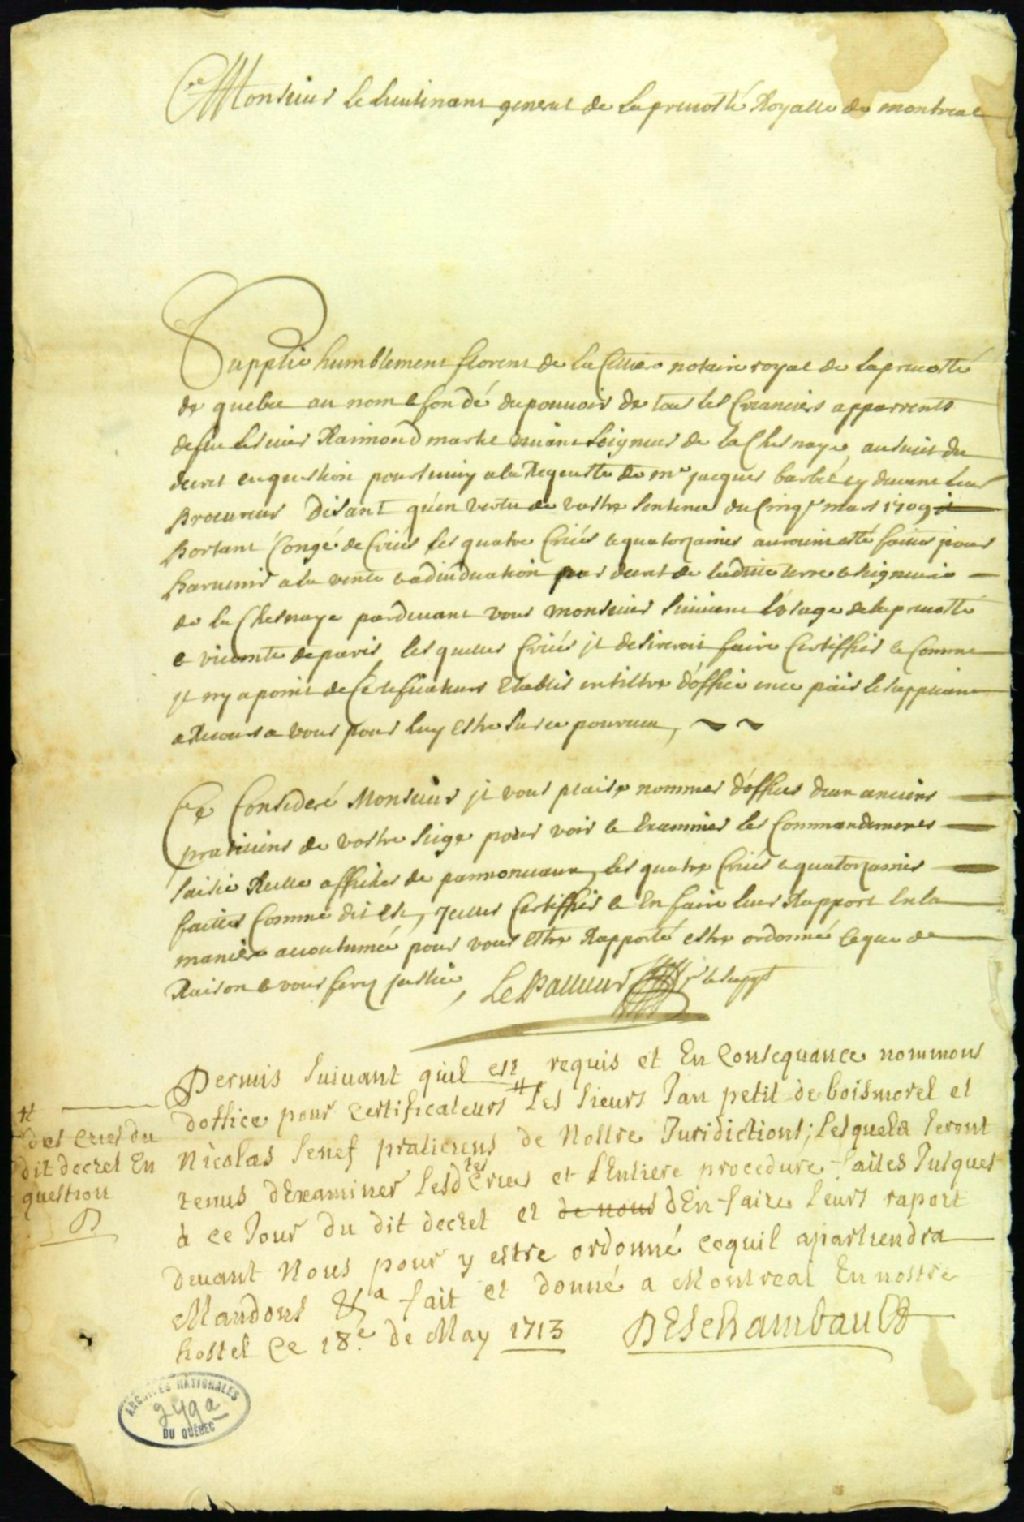 A Monsieur le Lieutenant general de la prevosté Royalle de montreal
Supplie humblement florent de la Cettiere notaire royal de la prevosté
de quebec au nom & fondé de pouvoir de tous les Creanciers apparrents
de feu le sieur Raimond martel vivant seigneur de la Chesnaye, au suit du
decret en question poursuivy a la Requeste de me jacques barbel cy devant leur
procureur Disant qu'en vertu de vostre sentence du Cinqe mars 1709
portant Congé de Criées les quatre Criées & quatorzaines auroient esté faites pour
parvenir a la vente & adjudication par decret de ladite terre & seigneurie
de la Chesnaye pardevant vous monsieur suivant l'usage de la prevosté
& vicomté de paris, les quelles Criées il desireroit faire Certiffier & Comme
il n'y a point de Certificateurs Etablis en tiltre d'office en ce païs le suppliant
a Recours a vous pour luy estre sur ce pourveu,
Ce Consideré Monsieur il vous plaise nommer d'office deux anciens
praticiens de vostre siege pour voir & Examiner les Commandements
saisie Reelle affiches de pannonceaux, les quatre Criées & quatorzaines
faittes Comme dit est, Icelles Certiffier & En faire leur Rapport En la
maniere accoutumée pour vous Estre Rapporté estre ordonné ce que de
Raison & vous ferez justice, Le Pailleur pr le suppt
Permis suivant quil est requis et En Consequance nommons
doffice pour Certificateurs # Les sieurs Jan petit de boismorel et
# des cries du
dit decret En
question
D
Nicolas senet praticiens de Nostre Juridictions; Lesquels seront
tenus dExaminer Lesdtes Cries et L'Entiere procedure faites Jusques
à ce Jour du dit decret et de nous dEn faire Leurs raport
devant Nous pour y estre ordonné cequil apartiendra
Mandons &a fait et donné a Montreal En nostre
hostel Ce 18e. de May 1713 DEschambault
ARCHIVES NATIONALES
DU QUÉBEC